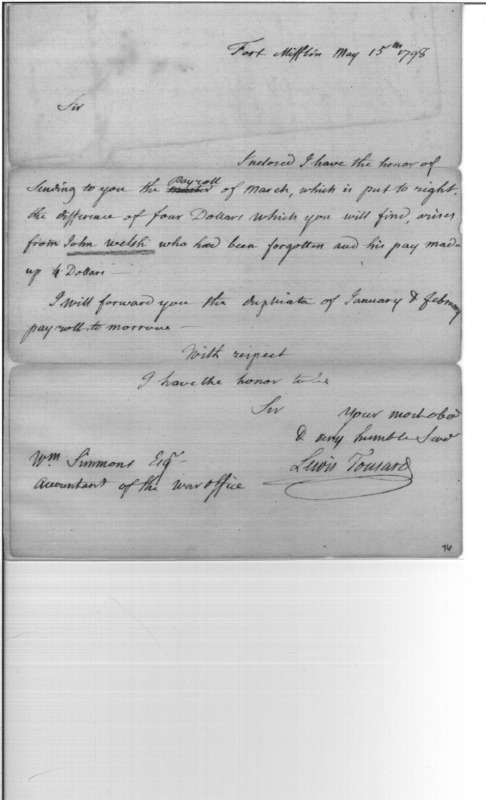 Fort Mifflin May 15th 1798
Sir
Inclosed I have the honor of
sending to you the payroll of March, which is put to right.
the difference of four Dollars which you will find, arises
from John Welsh who had been forgotten and his pay made
up 4 Dollars —
I will forward you the duplicate of January & february
payroll to morrow —
With respect
I have the honor to be
Sir
Your most obed
& very humble Serv
Lewis Tousard
Wm Simmons Esqr —
Accountant of the war office